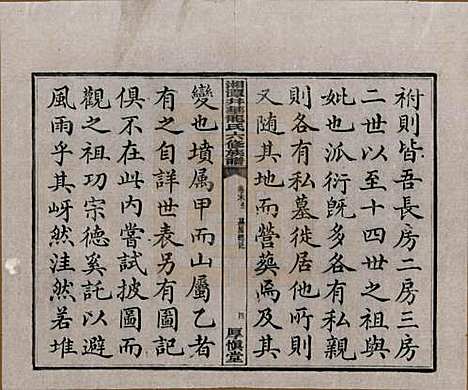 祔則皆吾長房二房三房
二世以至十四世之祖與
妣也派衍既多各有私親
則各有私墓徙居他所則
又随其地而營葬焉及其
湘潭井華熊氏六修族譜
四
厚慎堂
變也墳属甲而山屬乙者
有之自詳世表另有圖記
俱不在此内嘗試披圖而
觀之祖功宗德奚託以避
風雨乎其岈然洼然若堆